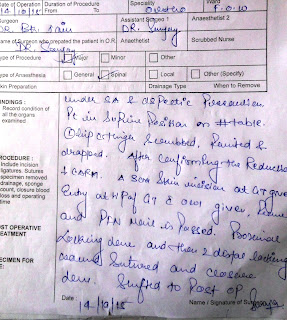 Date of Operation Duration of Procedure Speciality Ward
14/10/15 From To Ortho F.O.W
Surgeon Assistant Surgeon 1 Anaesthetist 2
Jain DR. Sanjay
Name of Surgeon who prepated the patient in O.R. Anaesthetist Scrubbed Nurse
DR. Sanjay
Type of Procedure Major Minor Other
Type of Anaesthesia General Spinal Local Other (Specify)
Skin Preparation Drainage Type When to Remove
FINDINGS :
Record condition of all the organs examined
under SA & aseptic Precaution
Pt in Supine Position on # table.
hip & thigh Scrubbed, Painted &
drapped. After confirming the Reduction
PROCEDURE :
Include incision ligatures. Sutures specimen removed drainage, sponge count, closure blood loss and operating time
& CARM. A 5cm Skin incision at GT given
Entry at tip of GT & awl given.
and PFN Nail is Passed. Proximal
POST OPERATIVE TREATMENT
Locking done and then 2 distal locking
SPECIMEN FOR
Sutured and closure
done. Shifted to Post OP
Date 14/10/15 Name / Signature of Surgeon